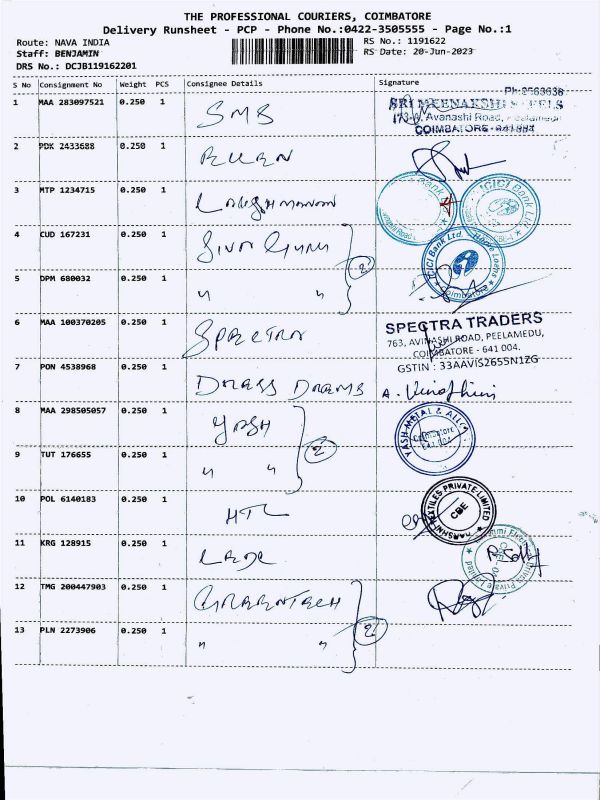 THE PROFESSIONAL COURIERS, COIMBATORE
Delivery Runsheet - PCP - Phone No.:0422-3505555 - Page No.:1
Route: NAVA INDIA RS No.: 1191622
Staff: BENJAMIN RS Date: 20-Jun-2023
DRS No.: DCJB119162201
S No Consignment No Weight PCS Consignee Details Signature
Ph:2563636
1 MAA 283097521 0.250 1 SMS SRI MEENAKSHI
Avanashi Road, Peelamedu
COIMBATORE - 641004
2 PDK 2433688 0.250 1
3 MTP 1234715 0.250 1 Lakshmanan ICICI Bank Ltd
4 CUD 167231 0.250 1 Siva Guru ICICI Bank Ltd. Home Loans
2
5 DPM 680032 0.250 1 " " Coimbatore
6 MAA 100370205 0.250 1 Spectra SPECTRA TRADERS
763, AVINASHI ROAD, PEELAMEDU,
COIMBATORE - 641 004.
GSTIN : 33AAVIS2655N1ZG
7 PON 4538968 0.250 1 Dress Dreams A.
8 MAA 298505057 0.250 1 YASH YASH-METAL & ALLOY
Coimbatore
641 004
2
9 TUT 176655 0.250 1 " "
10 POL 6140183 0.250 1 HTL HARSHNI TEXTILES PRIVATE LIMITED
CBE
11 KRG 128915 0.250 1 Private Limited
12 TMG 200447903 0.250 1 Greentech
2
13 PLN 2273906 0.250 1 " "